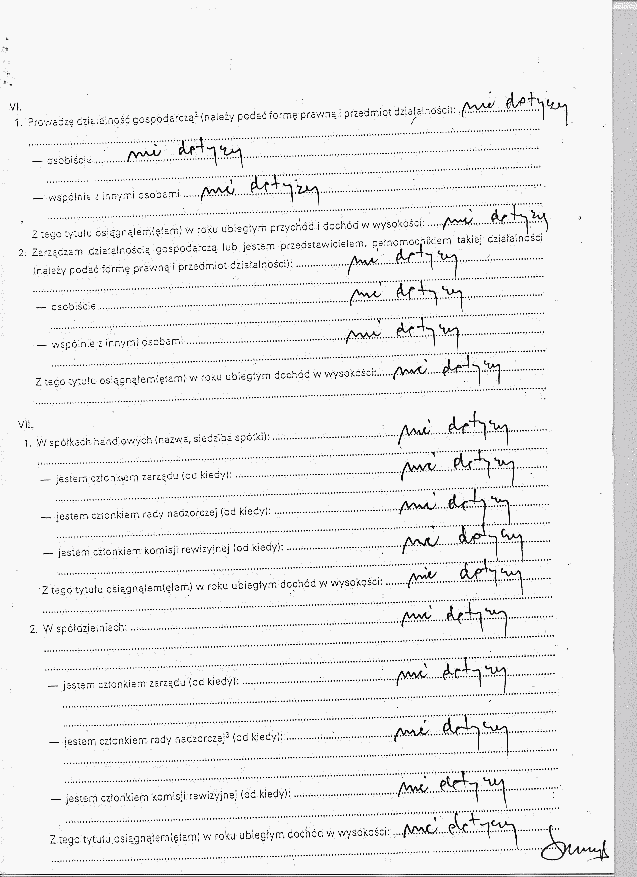 VI.
1. Prowadzę działalność gospodarczą² (należy podać formę prawną i przedmiot działalności): nie dotyczy
— osobiście nie dotyczy
— wspólnie z innymi osobami nie dotyczy
Z tego tytułu osiągnąłem(ęłam) w roku ubiegłym przychód i dochód w wysokości: nie dotyczy
2. Zarządzam działalnością gospodarczą lub jestem przedstawicielem, pełnomocnikiem takiej działalności
(należy podać formę prawną i przedmiot działalności): nie dotyczy
— osobiście nie dotyczy
— wspólnie z innymi osobami nie dotyczy
Z tego tytułu osiągnąłem(ęłam) w roku ubiegłym dochód w wysokości: nie dotyczy
VII.
1. W spółkach handlowych (nazwa, siedziba spółki): nie dotyczy
— jestem członkiem zarządu (od kiedy): nie dotyczy
— jestem członkiem rady nadzorczej (od kiedy): nie dotyczy
— jestem członkiem komisji rewizyjnej (od kiedy): nie dotyczy
Z tego tytułu osiągnąłem(ęłam) w roku ubiegłym dochód w wysokości: nie dotyczy
2. W spółdzielniach: nie dotyczy
— jestem członkiem zarządu (od kiedy): nie dotyczy
— jestem członkiem rady nadzorczej³ (od kiedy): nie dotyczy
— jestem członkiem komisji rewizyjnej (od kiedy): nie dotyczy
Z tego tytułu osiągnąłem(ęłam) w roku ubiegłym dochód w wysokości: nie dotyczy